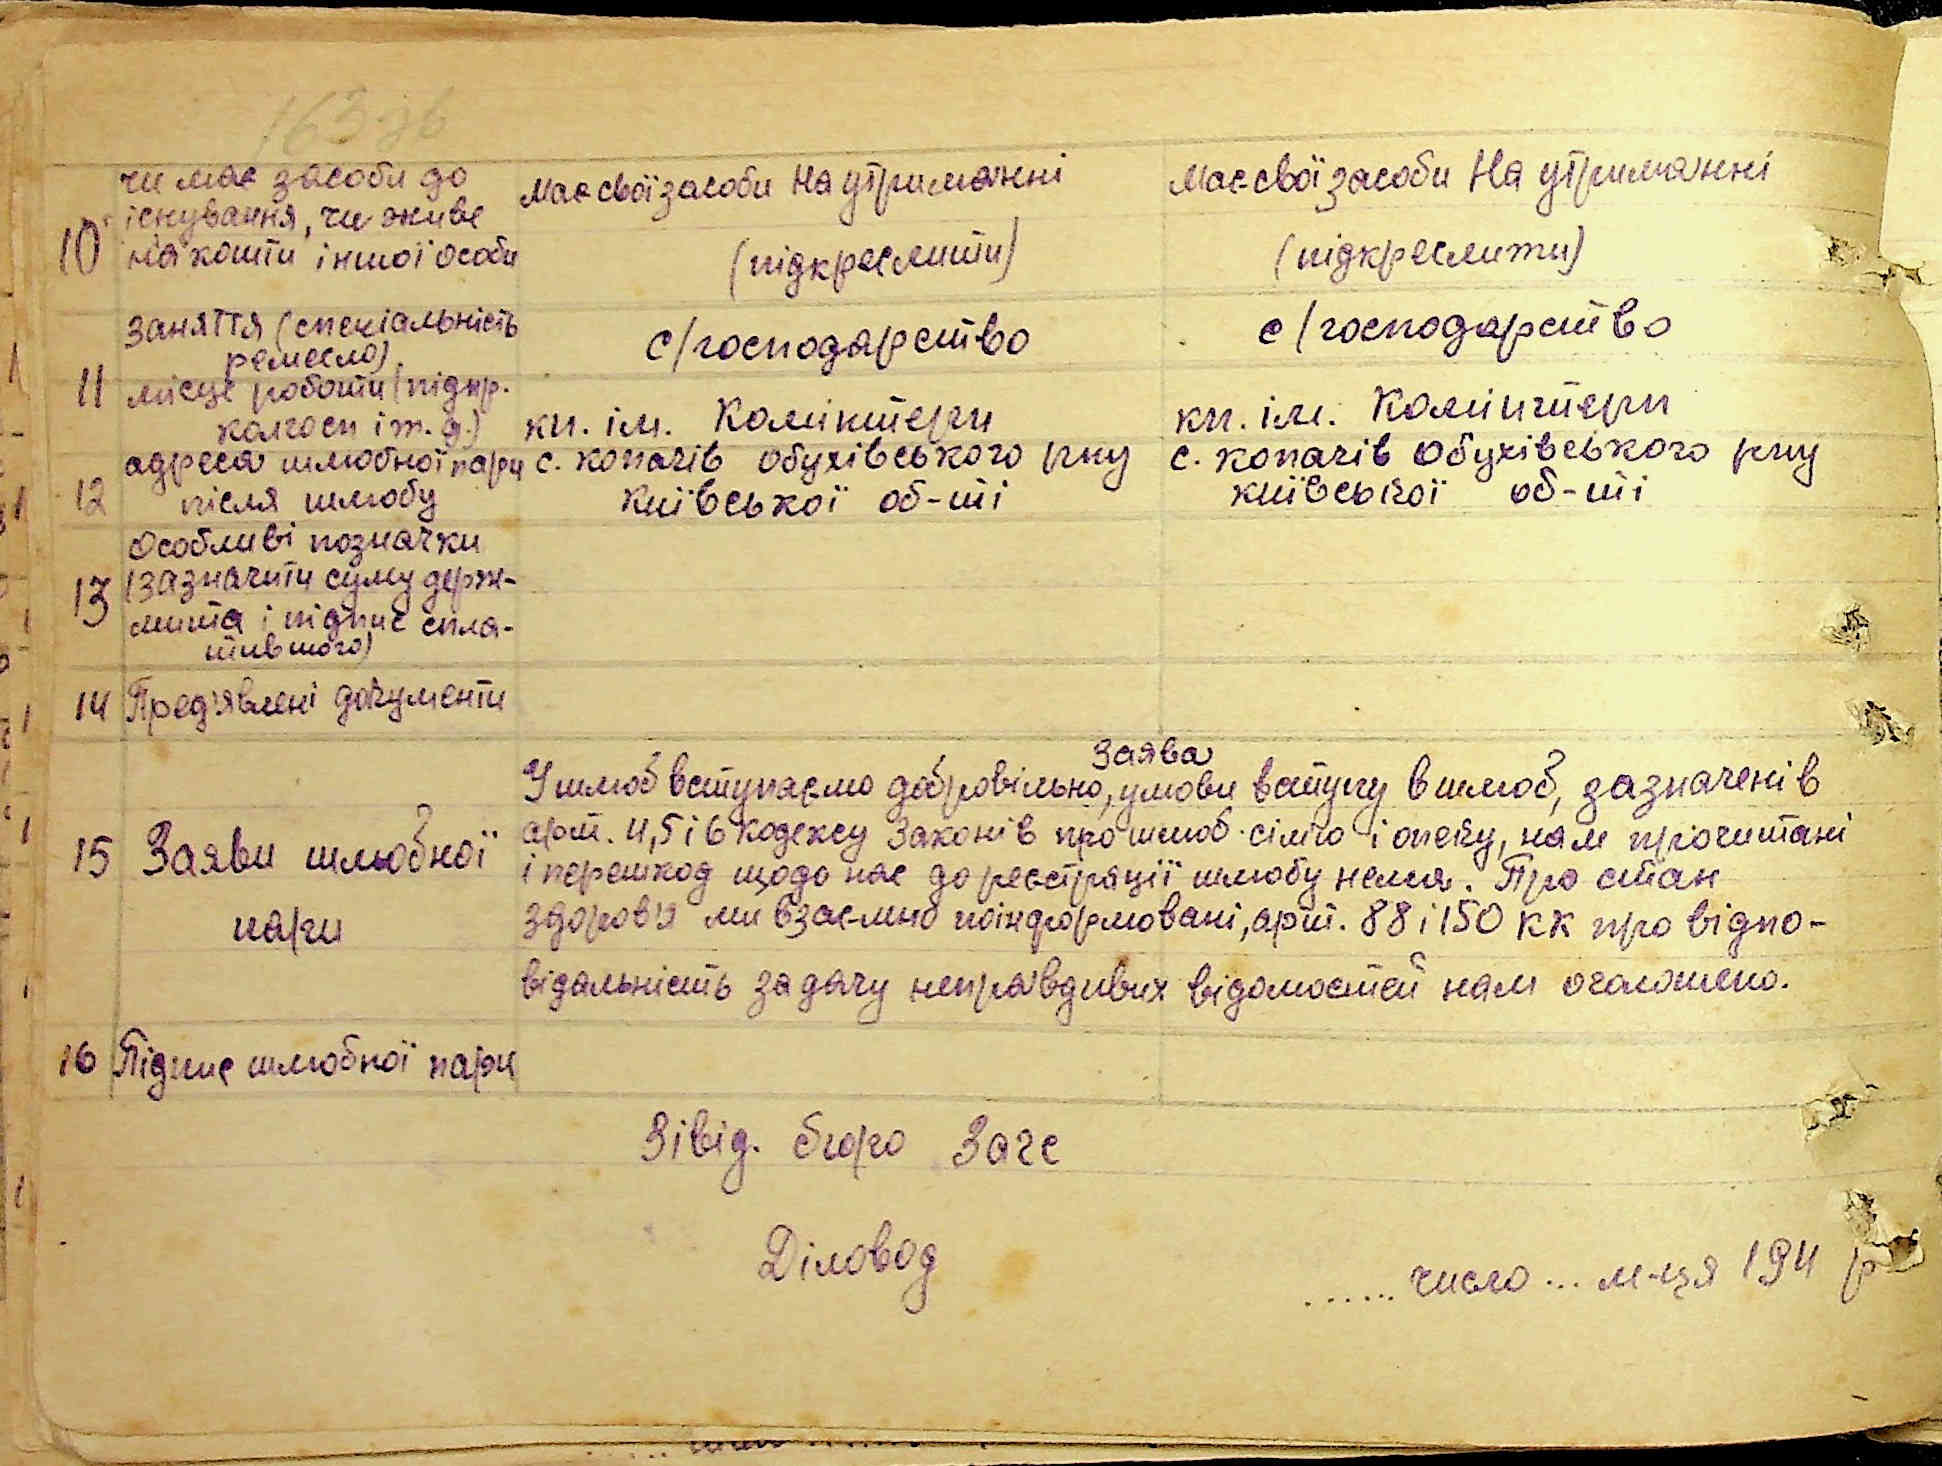 163 зв
10 чи має засоби до існування, чи живе на кошти іншої особи
Має свої засоби На утриманні (підкреслити)
Має свої засоби На утриманні (підкреслити)
11 заняття (спеціальність ремесло)
с/господарство
с/господарство
місце роботи (підпр. колгосп і т. д.)
кп. ім. Комінтерн
кп. ім. Комінтерн
12 адреса шлюбної пари після шлюбу
с. копачів обухівського рну Київської об-ті
с. копачів обухівського рну київської об-ті
13 Особливі позначки (зазначити суму держ-мита і підпис спла-тившого)
14 Пред'явлені документи
15 Заяви шлюбної пари
Заява
У шлюб вступаємо добровільно, умови вступу в шлюб, зазначені в
арт. 4,5 і 6 кодексу Законів про шлюб сім'ю і опеку, нам прочитані
і перешкод щодо нас до реєстрації шлюбу нема. Про стан
здоров'я ми взаємно поінформовані, арт. 88 і 150 КК про відпо-
відальність за дачу неправдивих відомостей нам оголошено.
16 Підпис шлюбної пари
Зівід. бюро Загс
Діловод
...... число ... м-ця 194 р